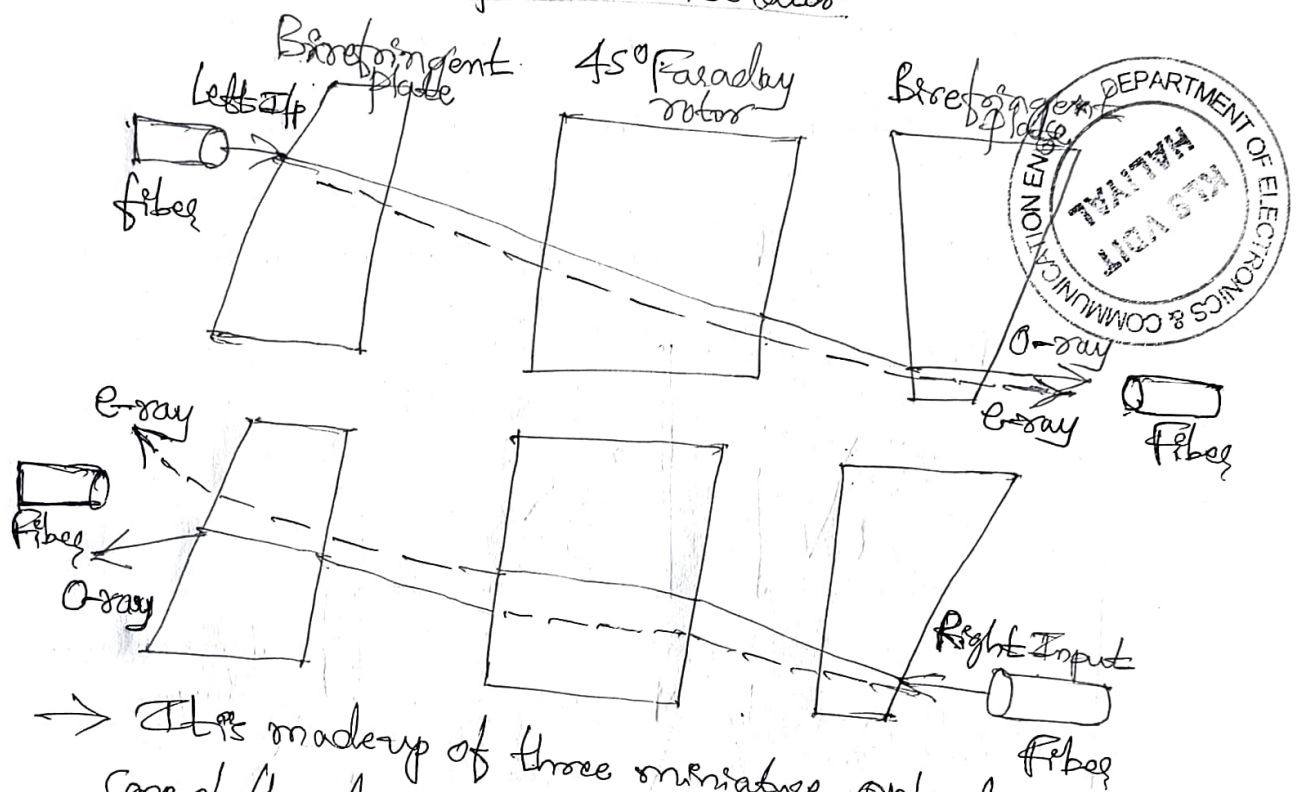 Birefringent Plate
45° Faraday rotor
Birefringent Plate
Left I/p
fiber
DEPARTMENT OF ELECTRONICS & COMMUNICATION ENGG
KLS VDIT
HALIYAL
O-ray
e-ray
Fiber
e-ray
Fiber
O-ray
Right Input
Fiber
→ It is madeup of three miniature